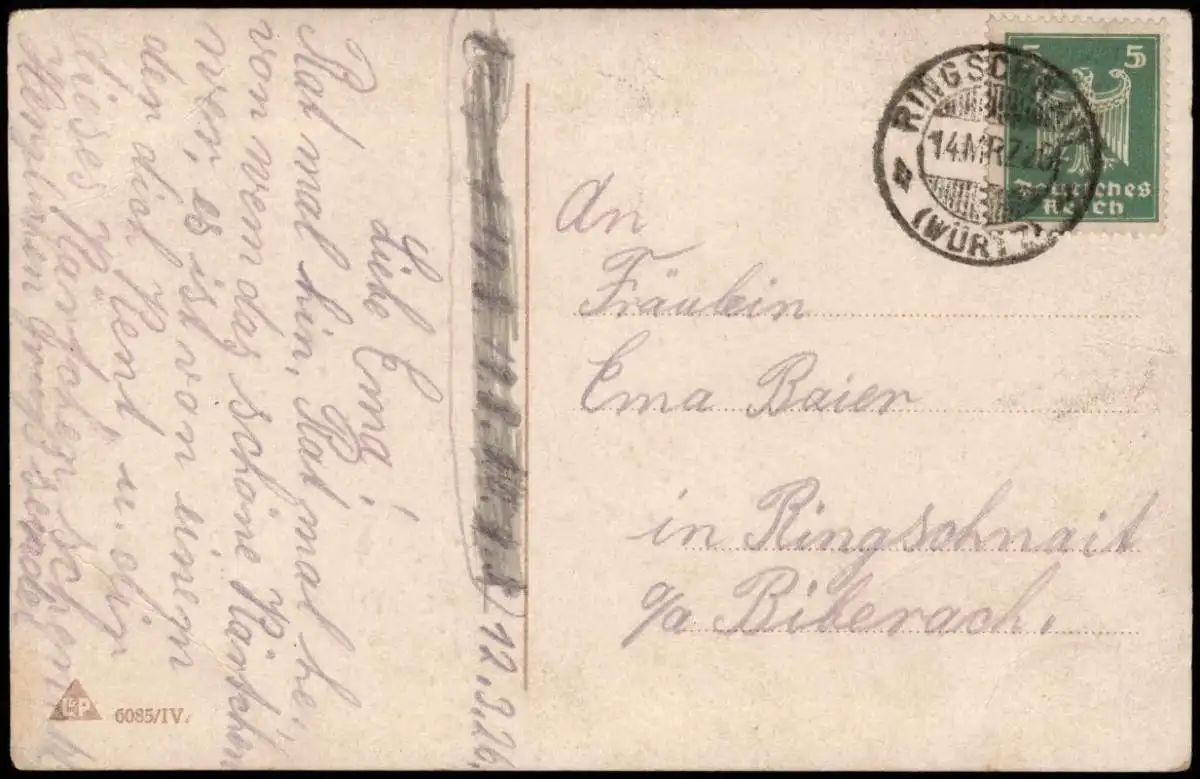 12.3.26.
Liebe Emg!
Rat mal hin, Rat mal he,
von wem das schöne Kärtchen
wer, es ist von einem
der dich kent, u. dir
dieses Kärtchen schenkt
Herzlichen Gruß sendet
5 5
Deutsches
Reich
RINGSCHNAIT
14 MRZ 26
(WÜRTT)
An
Fräulein
Ema Baier
in Ringschnait
o/a Biberach.
6085/IV.